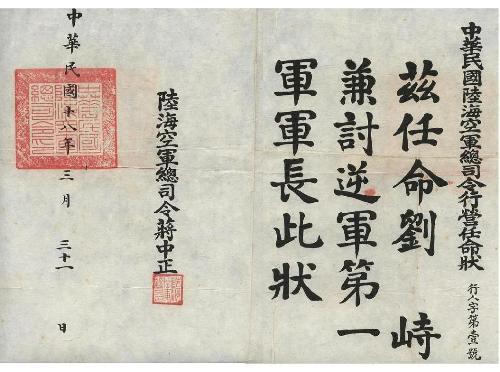 中華民國陸海空軍總司令行營任命狀
行人字第壹號
茲任命劉峙
兼討逆軍第一
軍軍長此狀
陸海空軍總司令蔣中正
中華民國十八年三月三十一日